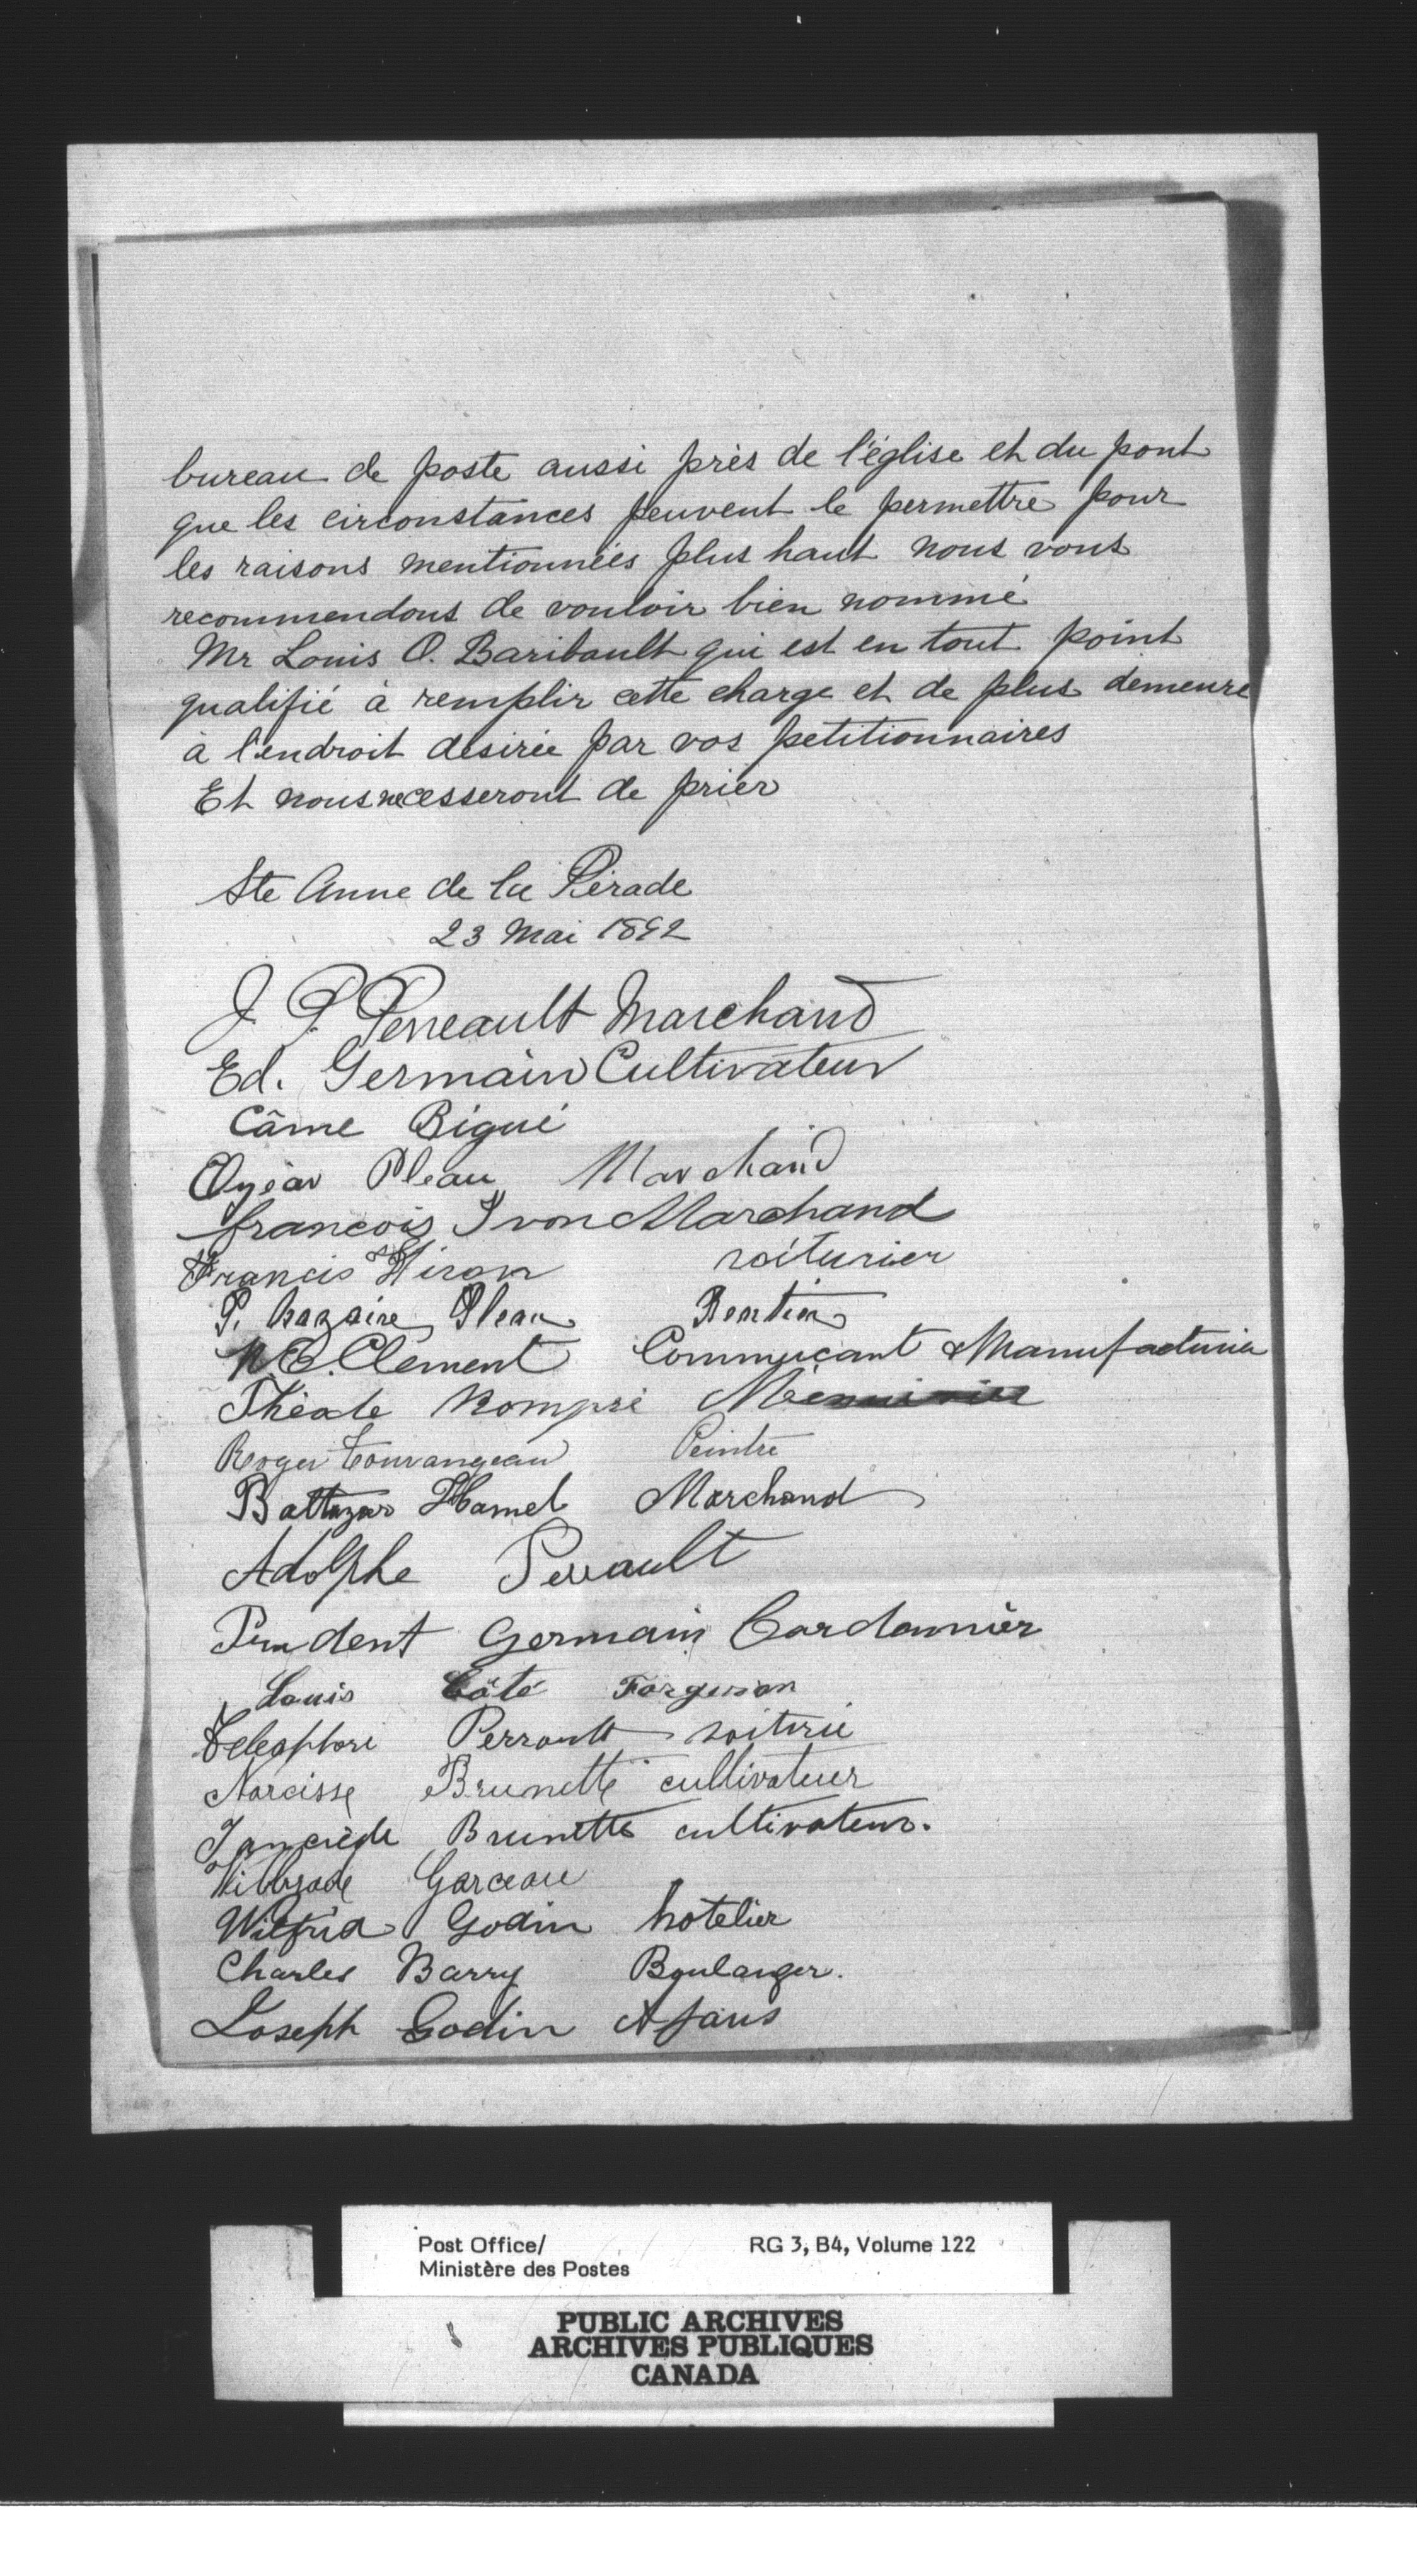 bureau de poste aussi près de l'église et du pont
que les circonstances peuvent le permettre pour
les raisons mentionnées plus haut nous vous
recommendons de vouloir bien nommé
Mr Louis O. Baribault qui est en tout point
qualifié à remplir cette charge et de plus demeure
à l'endroit desirée par vos petitionnaires
Et nous ne cesseront de prier
Ste Anne de la Pérade
23 Mai 1892
J. P. Perreault Marchand
Ed. Germain Cultivateur
Câme Bigué
Pleau Marchand
francois Ivon Marchand
Francis voiturier
P. Nazaire Pleau Rentier
N E. Clement Commercant & Manufacturier
Rompré
Roger Tourangeau Peintre
Baltazar Hamel Marchand
Adolphe Perrault
Prudent Germain Cordonnier
Louis Côté Forgeron
Telesphore Perrault
Narcisse Brunette cultivateur
Brunette cultivateur.
Garceau
Wilfrid Godin hotelier
Charles Barry Boulanger.
Joseph Godin
Post Office/ RG 3, B4, Volume 122
Ministère des Postes
PUBLIC ARCHIVES
ARCHIVES PUBLIQUES
CANADA